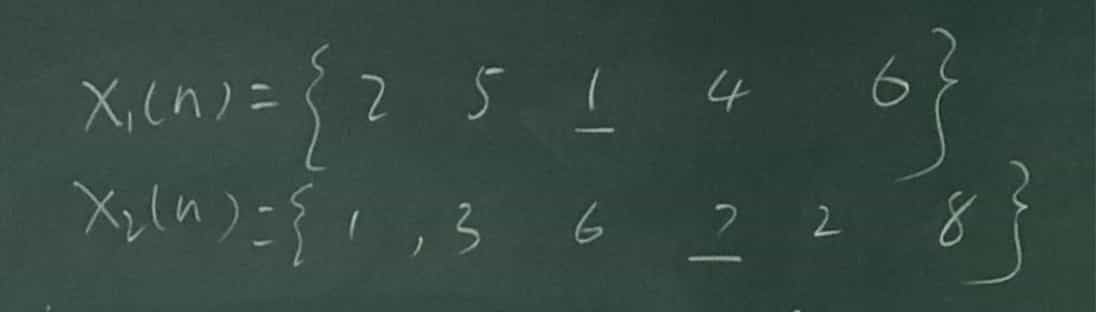 X₁(n)={ 2 5 1 4 6 }
X₂(n)={ 1 , 3 6 ? 2 8 }